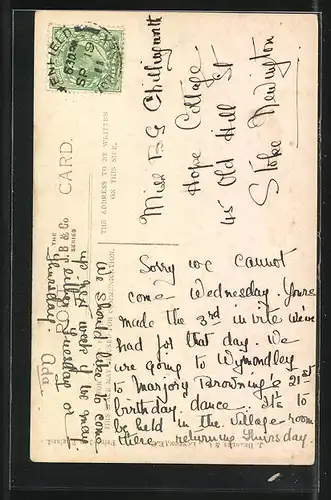 ENFIELD
6.30 PM
SP 19
11
CARD.
THE
J B & Co
SERIES
THE ADDRESS TO BE WRITTEN
ON THIS SIDE.
Miss B G
Hope Cottage
45 Old Hill St
Stoke Newington
Sorry we cannot
come Wednesday. Yours
made the 3rd invite we've
had for that day. We
are going to Wymondley
to Marjory Browning's 21st
birthday dance. It's to
be held in the village room
there returning Thursday.
We should like to come
up next week if we may
either Tuesday or
Thursday Ada